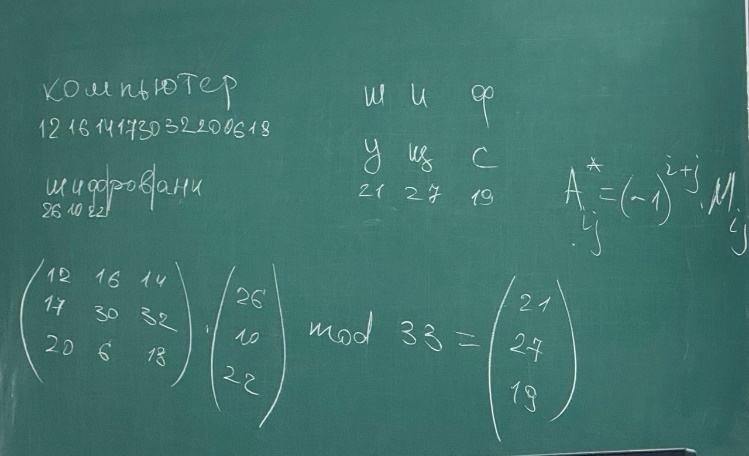 компьютер
12 16 14 17 30 32 20 06 18
шифровани
26 10 22
ш и ф
у щ с
21 27 19
A*ij = (-1)^i+j . Mij
(12 16 14
17 30 32
20 6 18) . (26
10
22) mod 33 = (21
27
19)